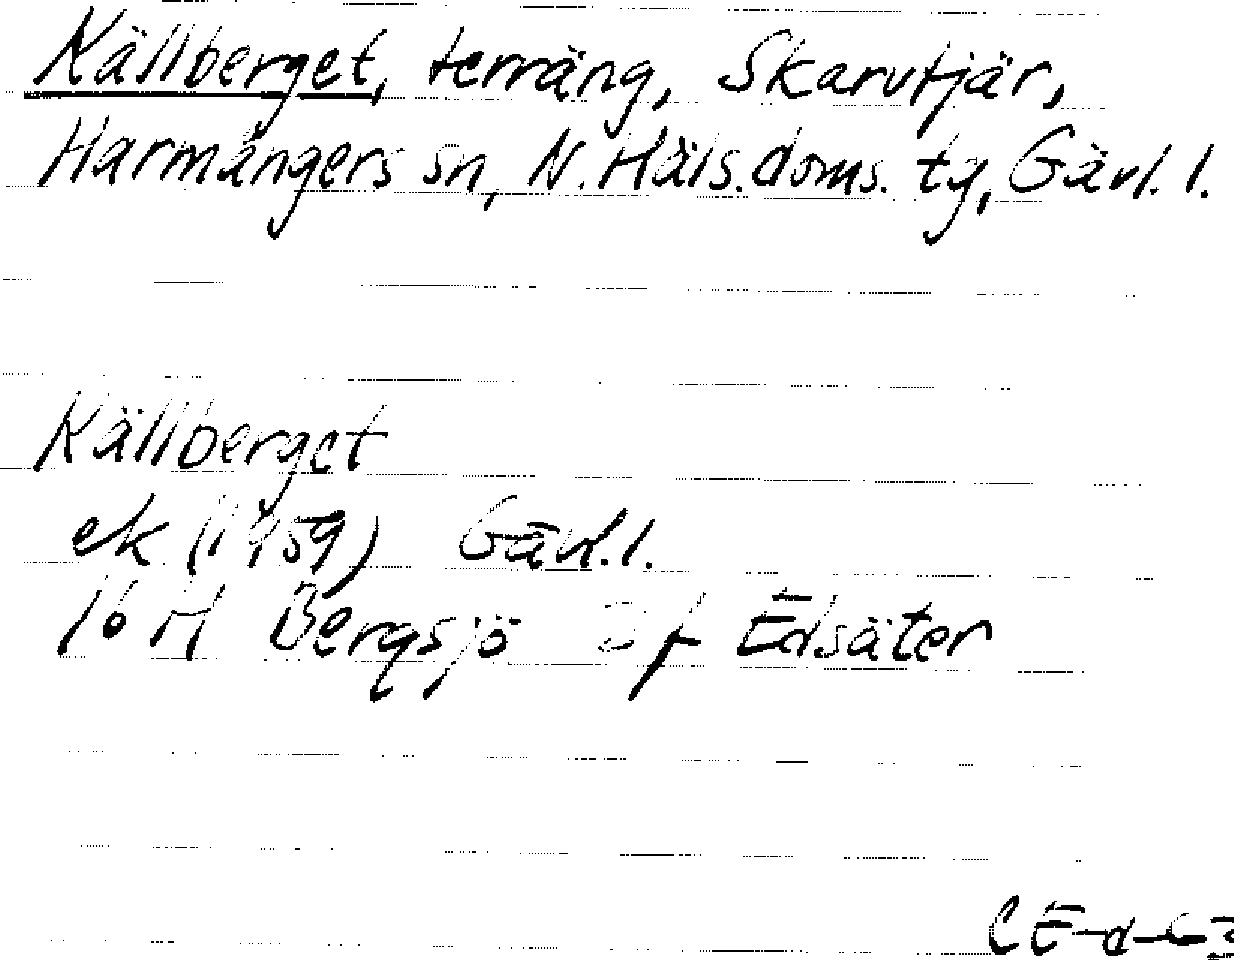 Källberget, terräng, Skarvtjär,
Harmångers sn, N. Häls. doms. tg, Gävl. l.
Källberget
ek (1959) Gävl. l.
16 H Bergsjö 2 f Edsäter